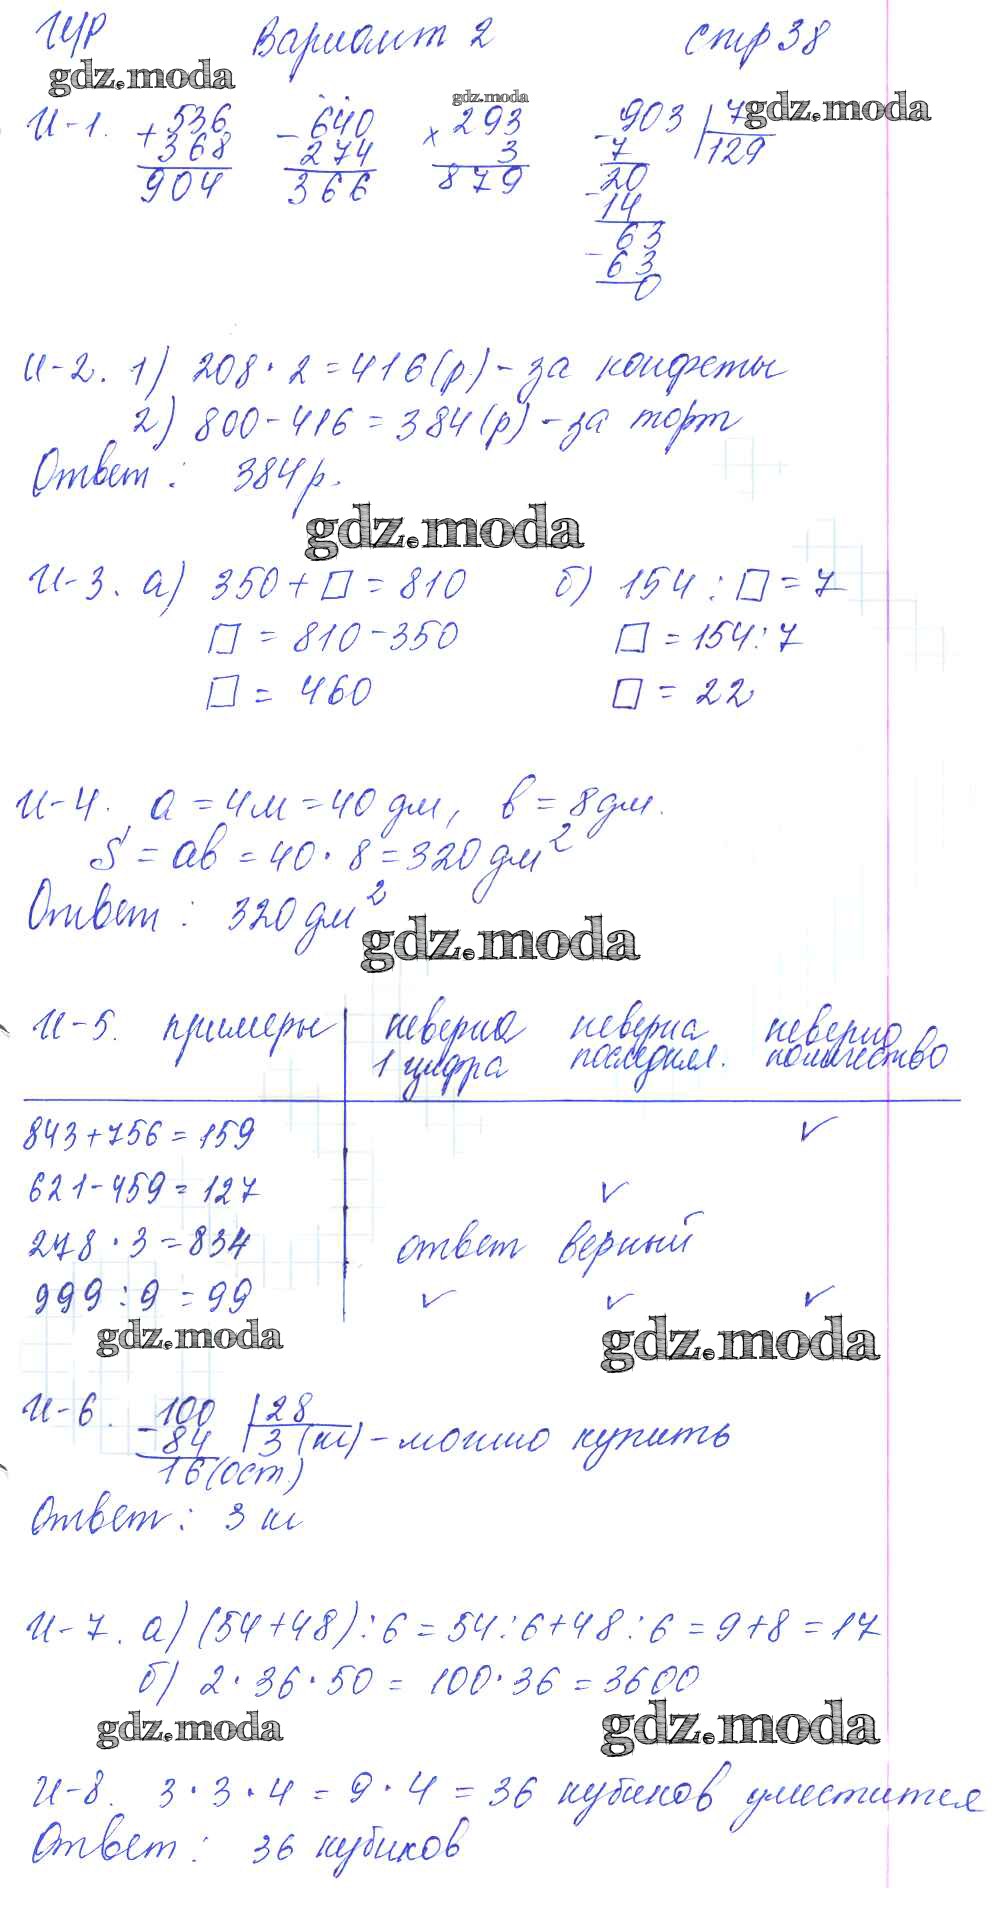 ИЧР Вариант 2 стр 38
gdz.moda
gdz.moda
gdz.moda
И-1. +536 -640 ×293 -903 | 7
368 274 3 7 129
904 366 879 20
-14
63
-63
0
И-2. 1) 208 · 2 = 416 (р) - за конфеты
2) 800 - 416 = 384 (р) - за торт
Ответ : 384 р.
gdz.moda
И-3. а) 350 + □ = 810 б) 154 : □ = 7
□ = 810 - 350 □ = 154 : 7
□ = 460 □ = 22
И-4. а = 4м = 40 дм, в = 8 дм.
S = ав = 40 · 8 = 320 дм²
Ответ : 320 дм²
gdz.moda
И-5. примеры неверна неверна неверно
1 цифра последняя. количество
843 + 756 = 159 ✓
621 - 459 = 127 ✓
278 · 3 = 834 ответ верный
999 : 9 = 99 ✓ ✓ ✓
gdz.moda
gdz.moda
И-6. -100 | 28
84 3 (кг) - можно купить
16 (ост)
Ответ : 3 кг
И-7. а) (54 + 48) : 6 = 54 : 6 + 48 : 6 = 9 + 8 = 17
б) 2 · 36 · 50 = 100 · 36 = 3600
gdz.moda
gdz.moda
И-8. 3 · 3 · 4 = 9 · 4 = 36 кубиков уместится
Ответ : 36 кубиков